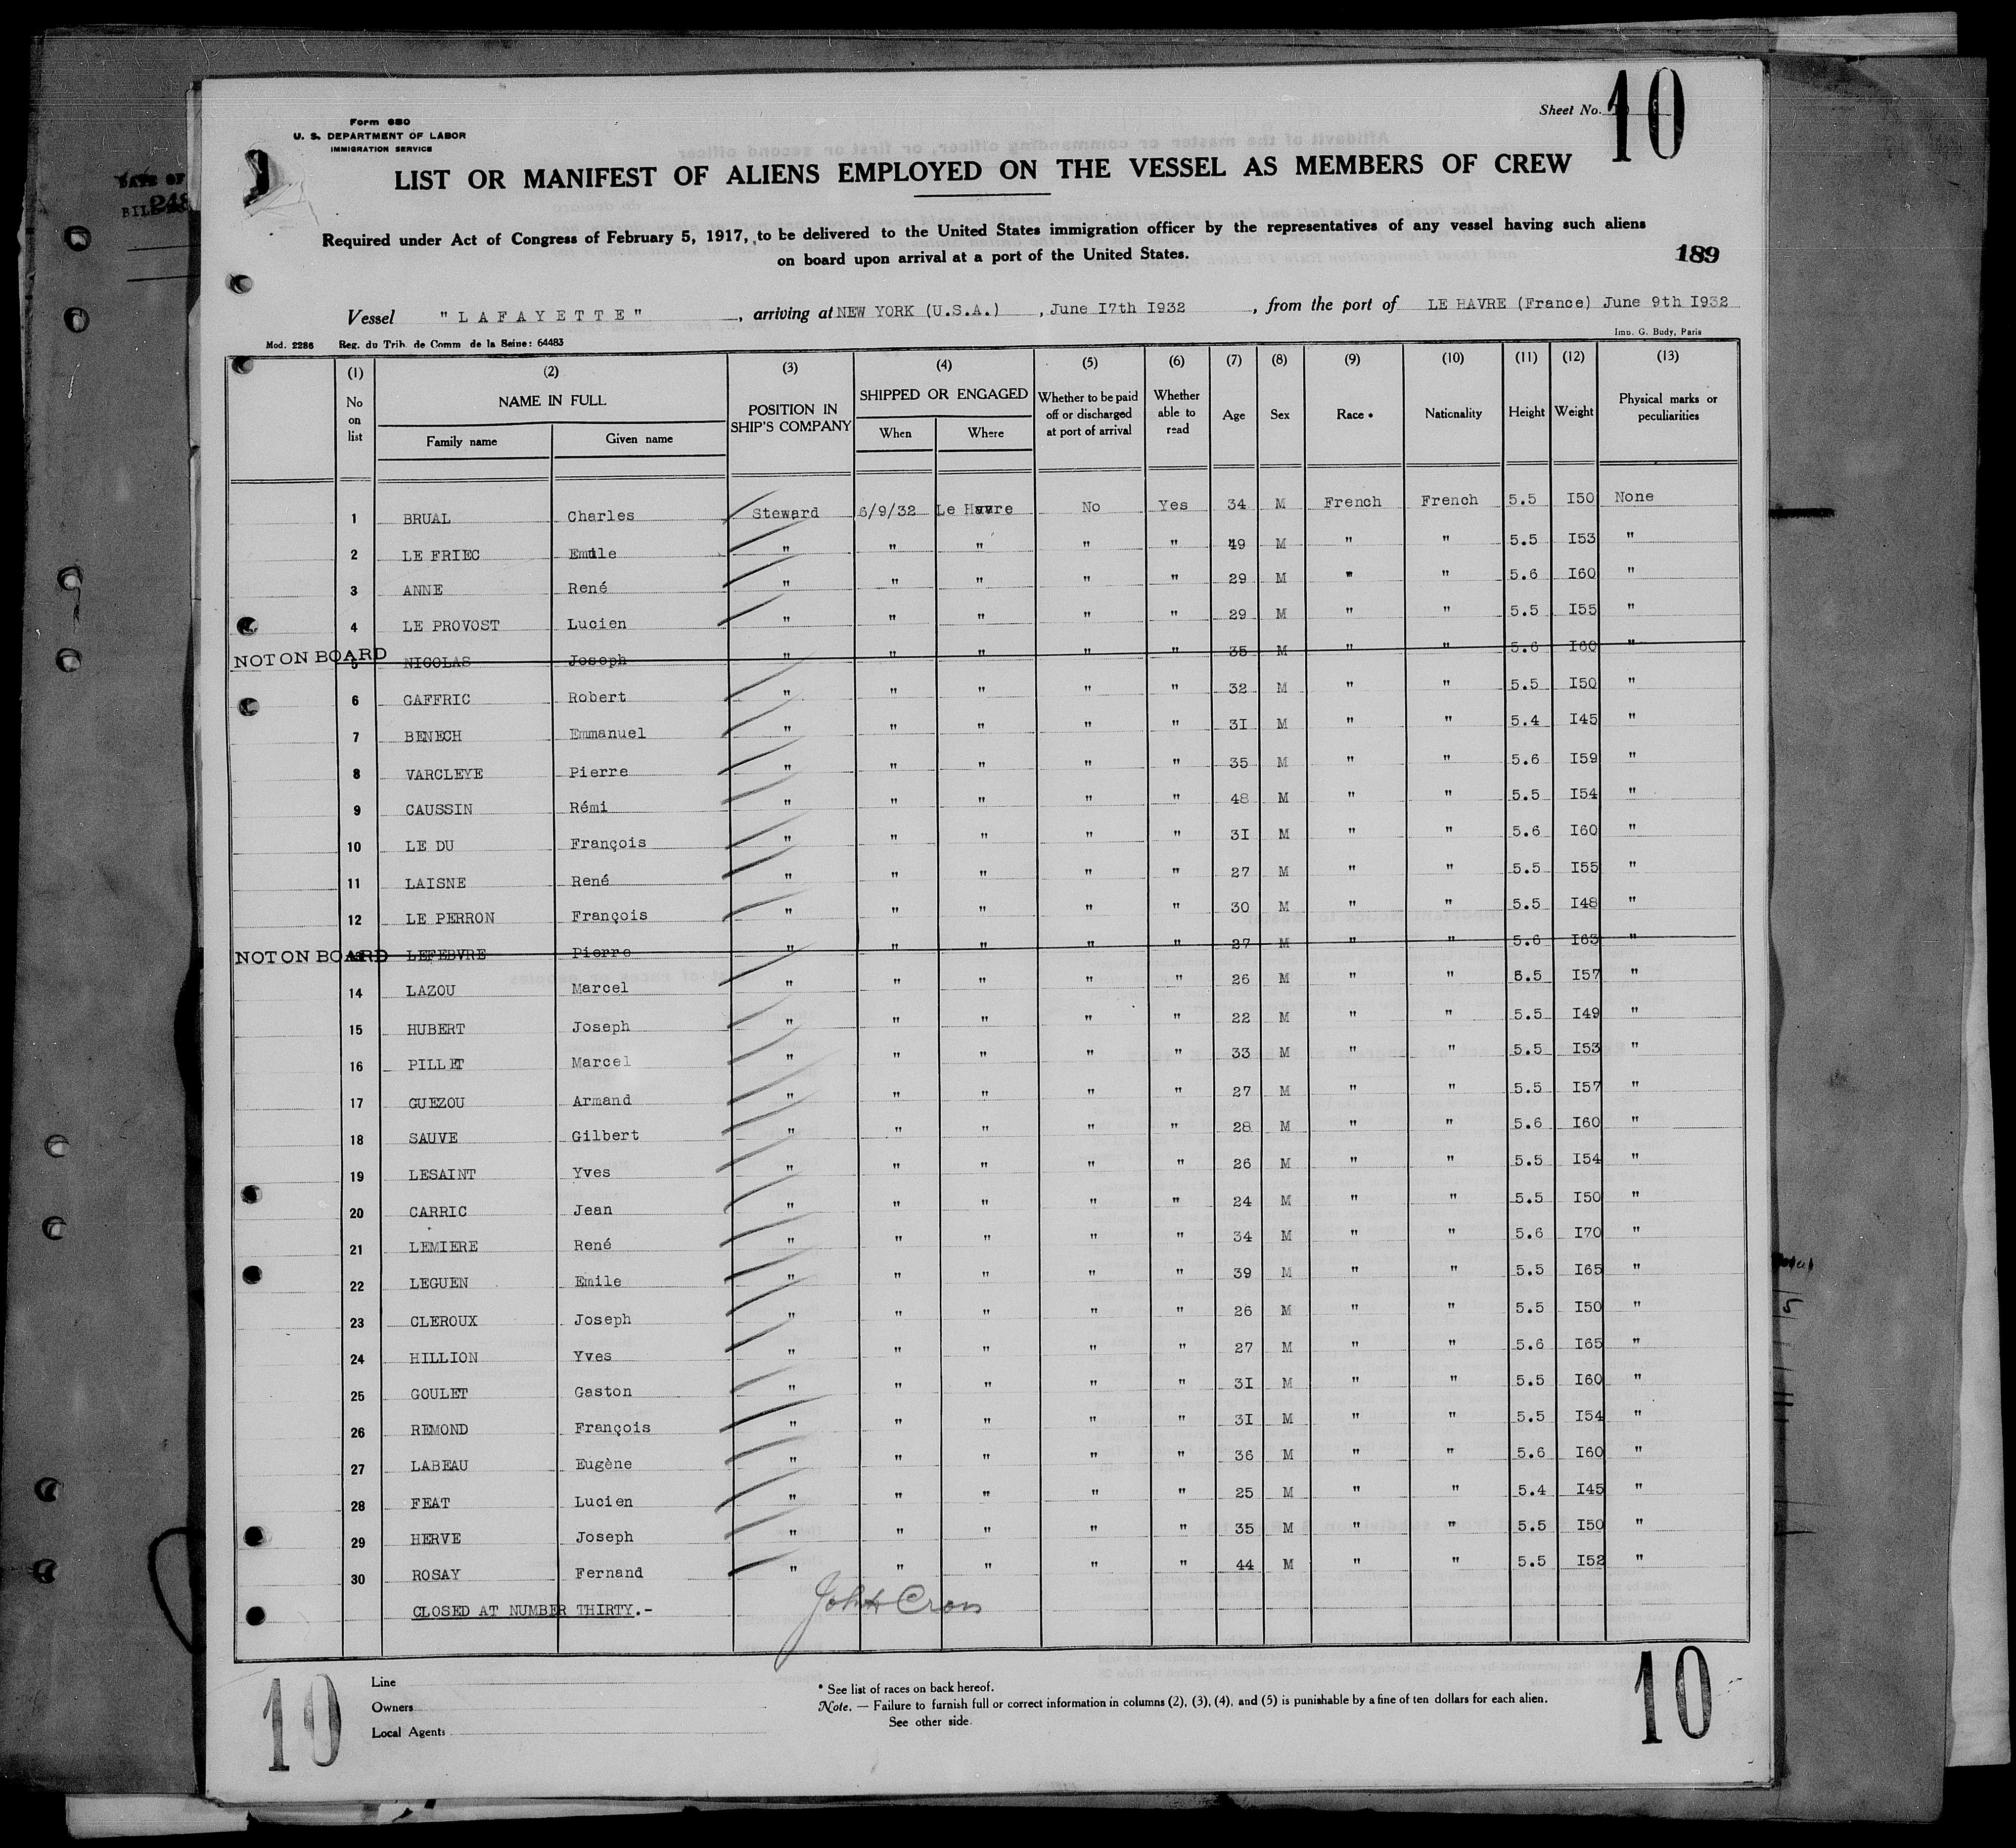 Sheet No. 10
Form 680
U. S. DEPARTMENT OF LABOR
IMMIGRATION SERVICE
LIST OR MANIFEST OF ALIENS EMPLOYED ON THE VESSEL AS MEMBERS OF CREW
Required under Act of Congress of February 5, 1917, to be delivered to the United States immigration officer by the representatives of any vessel having such aliens
on board upon arrival at a port of the United States.
189
Vessel "LAFAYETTE", arriving at NEW YORK (U.S.A.), June I7th I932, from the port of LE HAVRE (France) June 9th I932
Imp. G. Budy, Paris
Mod. 2286 Reg. du Trib. de Comm de la Seine: 64483
(1) (2) (3) (4) (5) (6) (7) (8) (9) (10) (11) (12) (13)
No on list NAME IN FULL Family name Given name POSITION IN SHIP'S COMPANY SHIPPED OR ENGAGED When Where Whether to be paid off or discharged at port of arrival Whether able to read Age Sex Race * Nationality Height Weight Physical marks or peculiarities
1 BRUAL Charles Steward 6/9/32 Le Havre No Yes 34 M French French 5.5 I50 None
2 LE FRIEC Emile " " " " " 49 M " " 5.5 I53 "
3 ANNE René " " " " " 29 M " " 5.6 I60 "
4 LE PROVOST Lucien " " " " " 29 M " " 5.5 I55 "
NOT ON BOARD 5 NICOLAS Joseph " " " " " 35 M " " 5.6 I60 "
6 GAFFRIC Robert " " " " " 32 M " " 5.5 I50 "
7 BENECH Emmanuel " " " " " 3I M " " 5.4 I45 "
8 VARCLEYE Pierre " " " " " 35 M " " 5.6 I59 "
9 CAUSSIN Rémi " " " " " 48 M " " 5.5 I54 "
10 LE DU François " " " " " 3I M " " 5.6 I60 "
11 LAISNE René " " " " " 27 M " " 5.5 I55 "
12 LE PERRON François " " " " " 30 M " " 5.5 I48 "
NOT ON BOARD 13 LEFEBVRE Pierre " " " " " 27 M " " 5.6 I63 "
14 LAZOU Marcel " " " " " 26 M " " 5.5 I57 "
15 HUBERT Joseph " " " " " 22 M " " 5.5 I49 "
16 PILLET Marcel " " " " " 33 M " " 5.5 I53 "
17 GUEZOU Armand " " " " " 27 M " " 5.5 I57 "
18 SAUVE Gilbert " " " " " 28 M " " 5.6 I60 "
19 LESAINT Yves " " " " " 26 M " " 5.5 I54 "
20 CARRIC Jean " " " " " 24 M " " 5.5 I50 "
21 LEMIERE René " " " " " 34 M " " 5.6 I70 "
22 LEGUEN Emile " " " " " 39 M " " 5.5 I65 "
23 CLEROUX Joseph " " " " " 26 M " " 5.5 I50 "
24 HILLION Yves " " " " " 27 M " " 5.6 I65 "
25 GOULET Gaston " " " " " 3I M " " 5.5 I60 "
26 REMOND François " " " " " 3I M " " 5.5 I54 "
27 LABEAU Eugène " " " " " 36 M " " 5.6 I60 "
28 FEAT Lucien " " " " " 25 M " " 5.4 I45 "
29 HERVE Joseph " " " " " 35 M " " 5.5 I50 "
30 ROSAY Fernand " " " " " 44 M " " 5.5 I52 "
CLOSED AT NUMBER THIRTY.-
10
Line
Owners
Local Agents
* See list of races on back hereof.
Note. — Failure to furnish full or correct information in columns (2), (3), (4), and (5) is punishable by a fine of ten dollars for each alien.
See other side.
10